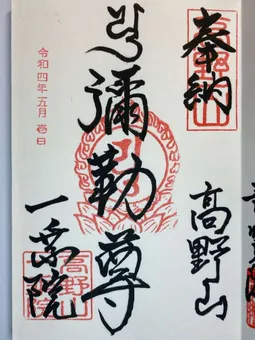 奉納
高野山
彌勒尊
一乗院
令和四年五月壱日
高野山